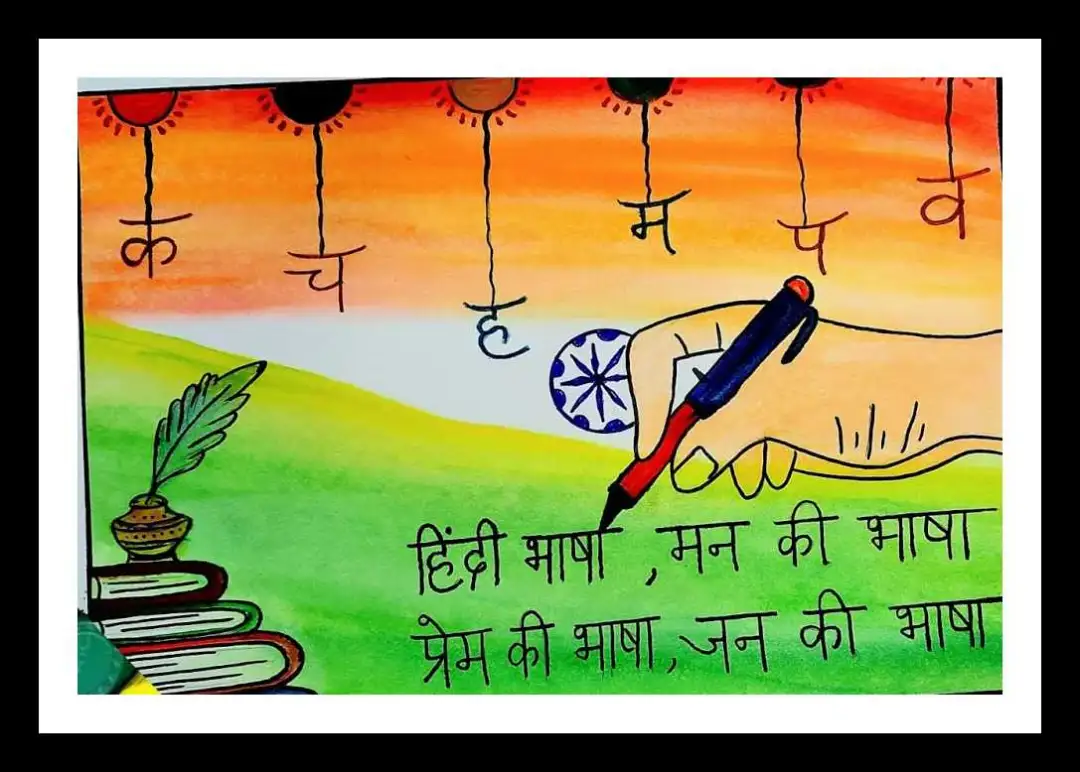 क च ह म प व
हिंदी भाषा , मन की भाषा
प्रेम की भाषा, जन की भाषा